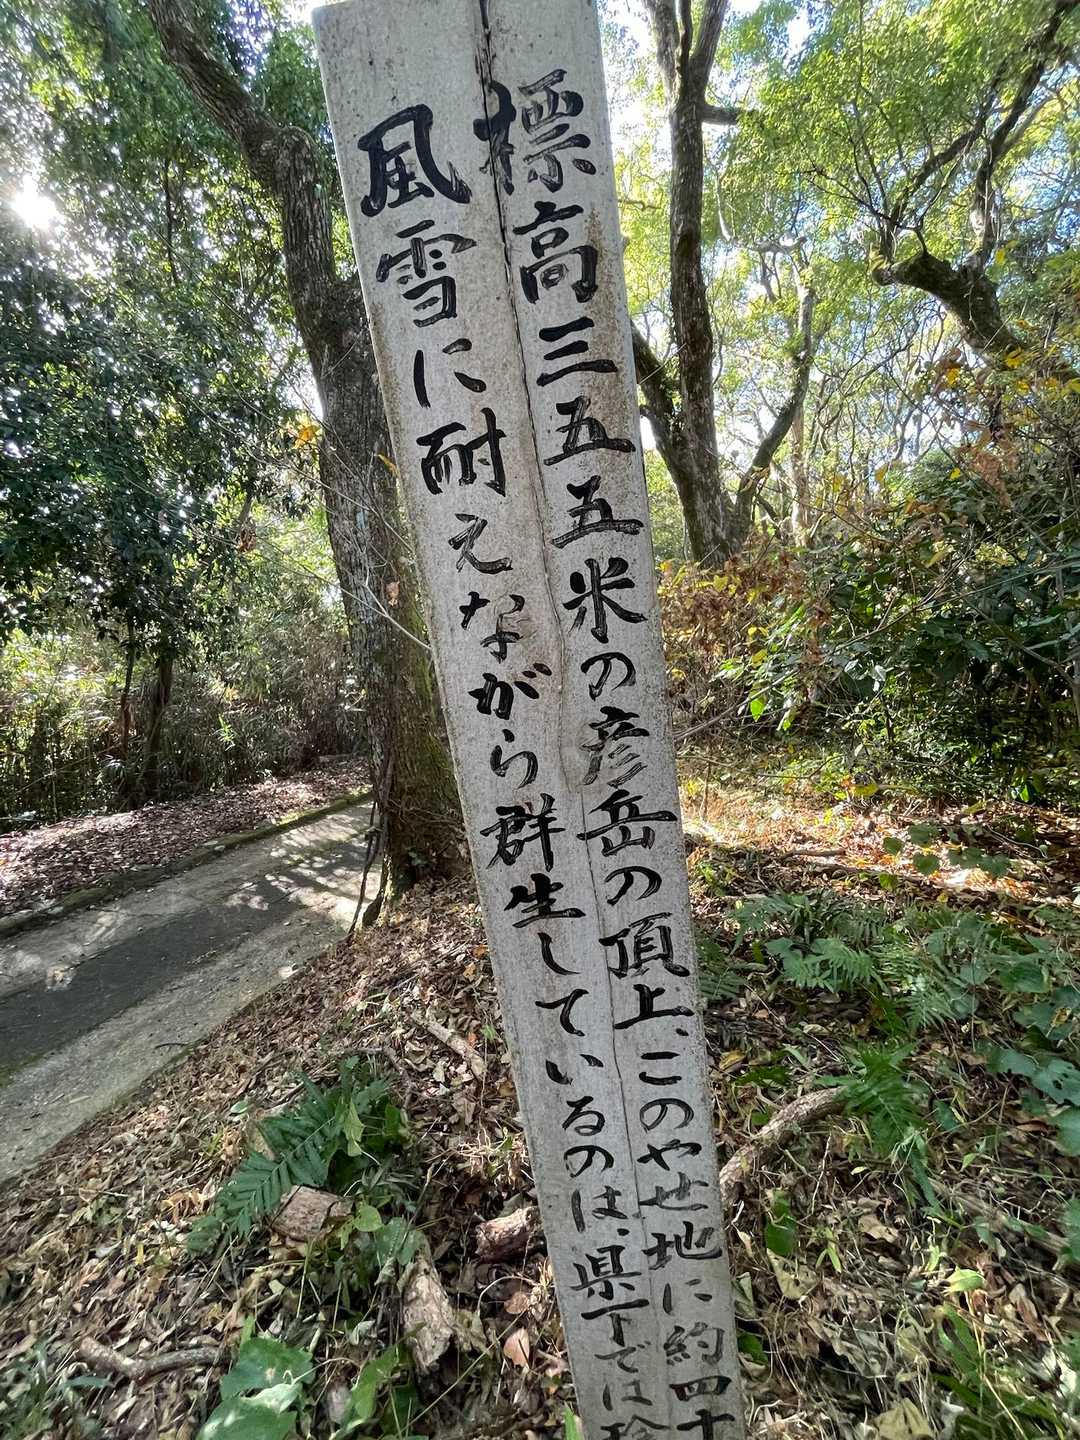 標高三五五米の彦岳の頂上、このやせ地に約四十
風雪に耐えながら群生しているのは、県下では珍